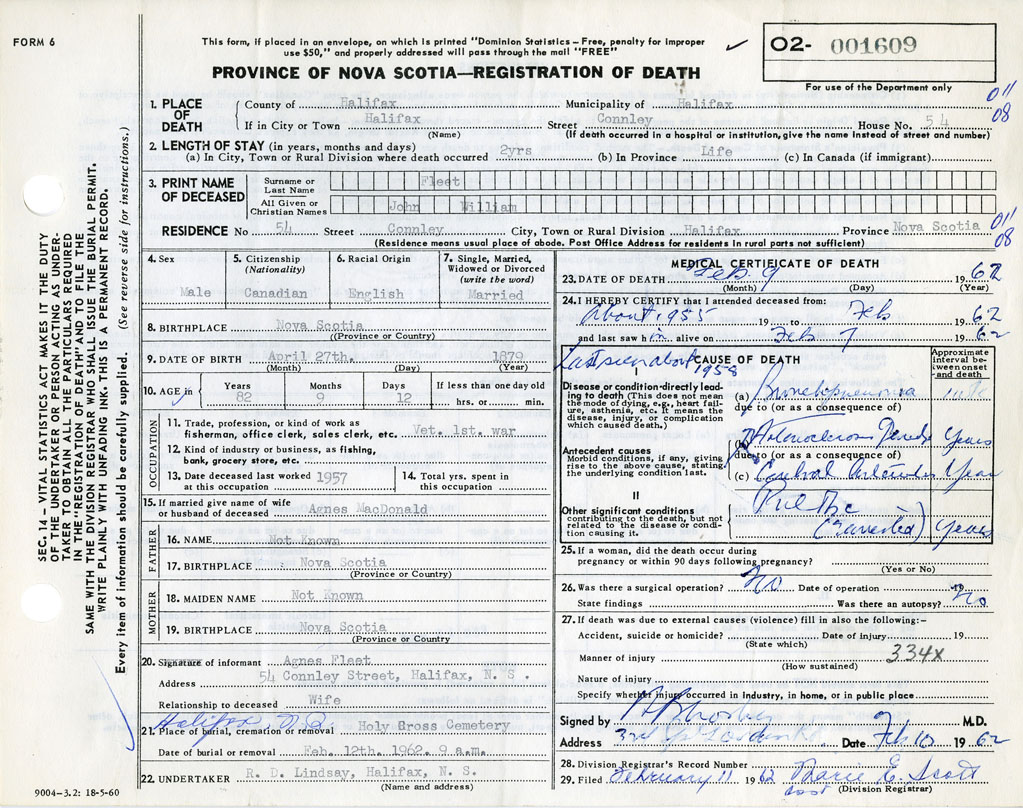 FORM 6
This form, if placed in an envelope, on which is printed "Dominion Statistics – Free, penalty for improper
use $50," and properly addressed will pass through the mail "FREE"
PROVINCE OF NOVA SCOTIA—REGISTRATION OF DEATH
02- 001609
For use of the Department only
SEC. 14 – VITAL STATISTICS ACT MAKES IT THE DUTY
OF THE UNDERTAKER OR PERSON ACTING AS UNDER-
TAKER TO OBTAIN ALL THE PARTICULARS REQUIRED
IN THE "REGISTRATION OF DEATH" AND TO FILE THE
SAME WITH THE DIVISION REGISTRAR WHO SHALL ISSUE THE BURIAL PERMIT.
WRITE PLAINLY WITH UNFADING INK. THIS IS A PERMANENT RECORD.
Every item of information should be carefully supplied. (See reverse side for instructions.)
1. PLACE OF DEATH
County of Halifax Municipality of Halifax 011
If in City or Town Halifax Street Connley House No. 54 08
(Name) (If death occurred in a hospital or institution, give the name instead of street and number)
2. LENGTH OF STAY (in years, months and days)
(a) In City, Town or Rural Division where death occurred 2yrs (b) In Province Life (c) In Canada (if immigrant)
3. PRINT NAME OF DECEASED
Surname or Last Name Fleet
All Given or Christian Names John William
RESIDENCE No 54 Street Connley City, Town or Rural Division Halifax Province Nova Scotia 011 08
(Residence means usual place of abode. Post Office Address for residents in rural parts not sufficient)
4. Sex
Male
5. Citizenship (Nationality)
Canadian
6. Racial Origin
English
7. Single, Married, Widowed or Divorced (write the word)
Married
8. BIRTHPLACE Nova Scotia
(Province or Country)
9. DATE OF BIRTH April 27th, 1879
(Month) (Day) (Year)
10. AGE in Years Months Days If less than one day old
82 9 12 hrs. or min.
OCCUPATION
11. Trade, profession, or kind of work as
fisherman, office clerk, sales clerk, etc. Vet. 1st. war
12. Kind of industry or business, as fishing,
bank, grocery store, etc.
13. Date deceased last worked at this occupation 1957
14. Total yrs. spent in this occupation
15. If married give name of wife
or husband of deceased Agnes MacDonald
FATHER
16. NAME Not Known
17. BIRTHPLACE Nova Scotia
(Province or Country)
MOTHER
18. MAIDEN NAME Not Known
19. BIRTHPLACE Nova Scotia
(Province or Country
20. Signature of informant Agnes Fleet
Address 54 Connley Street, Halifax, N. S.
Relationship to deceased Wife
Halifax N.S.
21. Place of burial, cremation or removal Holy Cross Cemetery
Date of burial or removal Feb. 12th. 1962. 9 a.m.
22. UNDERTAKER R. D. Lindsay, Halifax, N. S.
(Name and address)
9004–3.2: 18-5-60
MEDICAL CERTIFICATE OF DEATH
23. DATE OF DEATH Feb. 9 1962
(Month) (Day) (Year)
24. I HEREBY CERTIFY that I attended deceased from:
About 1955 19 to Feb 1962
and last saw him alive on Feb 7 1962
Last seen about 1958
CAUSE OF DEATH
Approximate interval between onset and death
I
Disease or condition directly lead-
ing to death (This does not mean
the mode of dying, e.g., heart fail-
ure, asthenia, etc. It means the
disease, injury, or complication
which caused death.)
(a) Bronchopneumonia
due to (or as a consequence of)
Antecedent causes
Morbid conditions, if any, giving
rise to the above cause, stating
the underlying condition last.
(b) Years
due to (or as a consequence of)
(c) Years
II
Other significant conditions
contributing to the death, but not
related to the disease or condi-
tion causing it.
Pul Tbc
(Arrested) Years
25. If a woman, did the death occur during
pregnancy or within 90 days following pregnancy?
(Yes or No)
26. Was there a surgical operation? No Date of operation 19
State findings Was there an autopsy? No
27. If death was due to external causes (violence) fill in also the following:–
Accident, suicide or homicide? Date of injury 19
(State which)
Manner of injury 334X
(How sustained)
Nature of injury
Specify whether injury occurred in industry, in home, or in public place
Signed by M.D.
Address Date Feb 10 1962
28. Division Registrar's Record Number
29. Filed February 11 1962 Marie E. Scott
asst (Division Registrar)